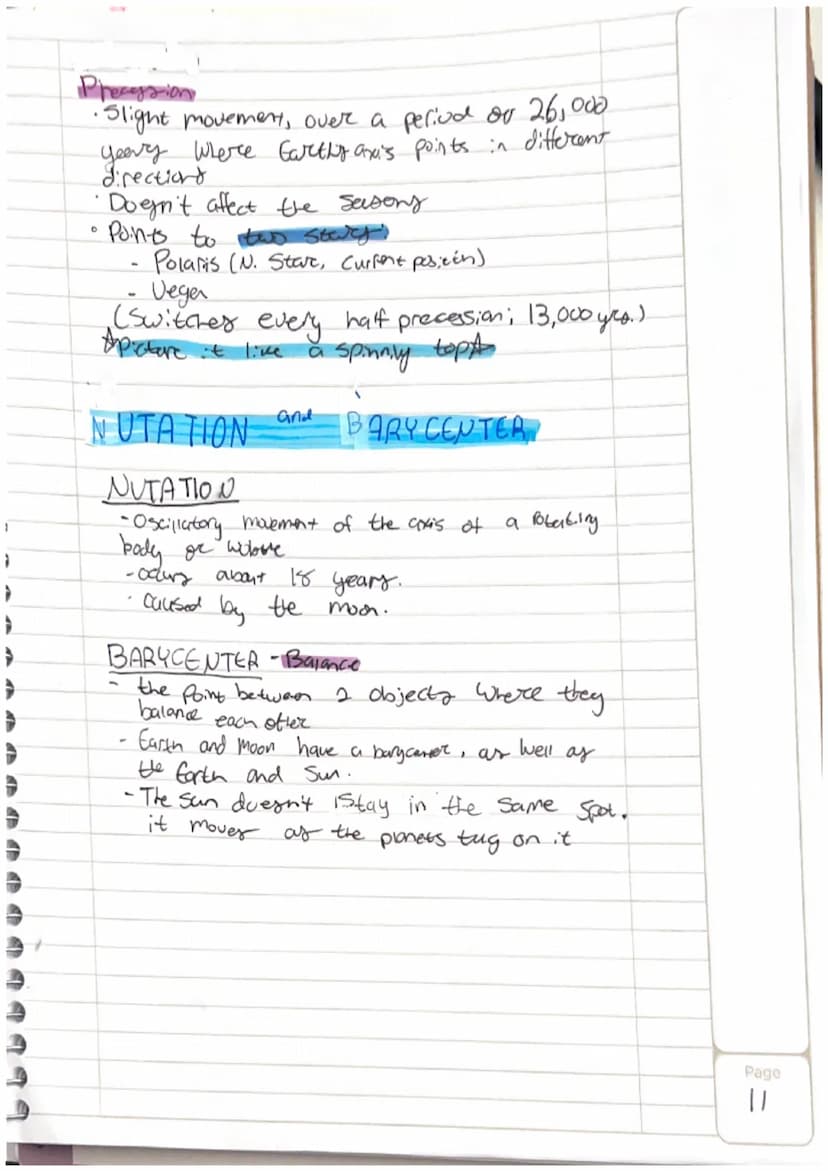 Precession
· Slight movement, over a period of 26,000
years where Earth's axis points in different
directions
· Doesn't affect the seasons
• Points to two stars:
- Polaris (N. Star, current position)
- Vega
(switches every half precession; 13,000 yrs.)
☆picture it like a spinning top☆
NUTATION and BARYCENTER
NUTATION
- Oscillatory movement of the axis of a rotating
body or wobble
- occurs about 18 years.
· Caused by the moon.
BARYCENTER - Balance
- the point between 2 objects where they
balance each other
- Earth and Moon have a barycenter, as well as
the Earth and Sun.
- The Sun doesn't stay in the same spot.
it moves as the planets tug on it
Page
11